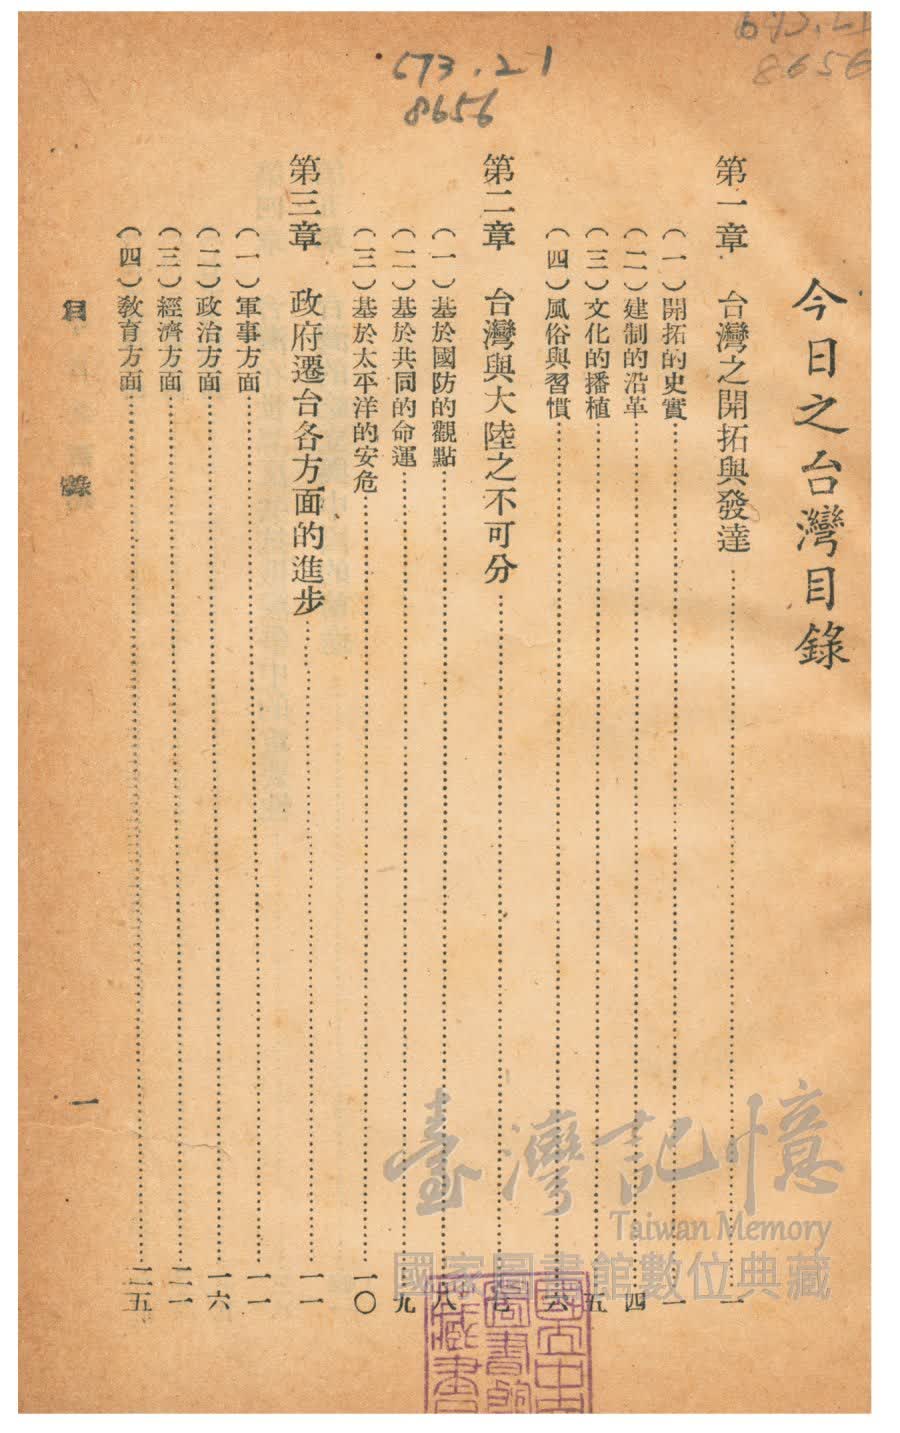 673.21
8656
8656
今日之台灣目錄
第一章　台灣之開拓與發達……一
（一）開拓的史實……一
（二）建制的沿革……四
（三）文化的播植……五
（四）風俗與習慣……六
第二章　台灣與大陸之不可分……七
（一）基於國防的觀點……八
（二）基於共同的命運……九
（三）基於太平洋的安危……一〇
第三章　政府遷台各方面的進步……一一
（一）軍事方面……一一
（二）政治方面……一六
（三）經濟方面……二一
（四）教育方面……二五
目　錄　一
臺灣記憶
Taiwan Memory
國家圖書館數位典藏